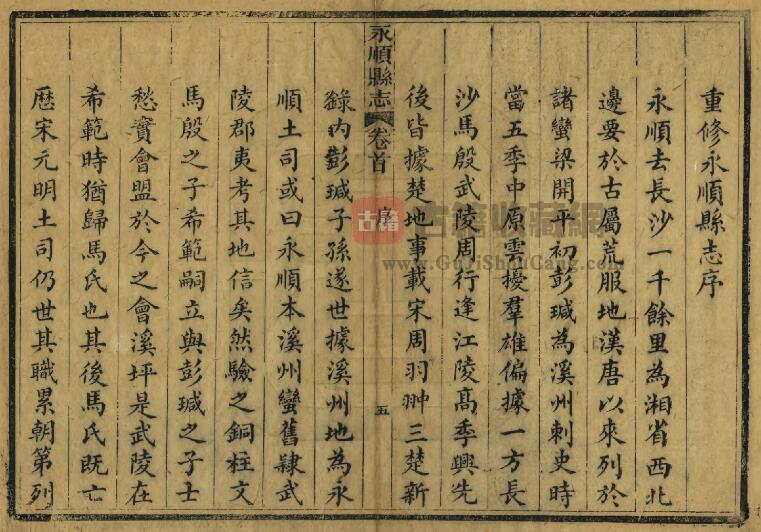 重修永順縣志序
永順去長沙一千餘里為湘省西北
邊要於古屬荒服地漢唐以來列於
諸蠻梁開平初彭瑊為溪州刺史時
當五季中原雲擾羣雄偏據一方長
沙馬殷武陵周行逢江陵高季興先
後皆據楚地事載宋周羽翀三楚新
永順縣志 卷首 序 五
錄內彭瑊子孫遂世據溪州地為永
順土司或曰永順本溪州蠻舊隸武
陵郡夷考其地信矣然驗之銅柱文
馬殷之子希範嗣立與彭瑊之子士
愁實會盟於今之會溪坪是武陵在
希範時猶歸馬氏也其後馬氏既亡
歷宋元明土司仍世其職累朝第列
古籍 古籍收藏網
www.GuJiShouCang.com